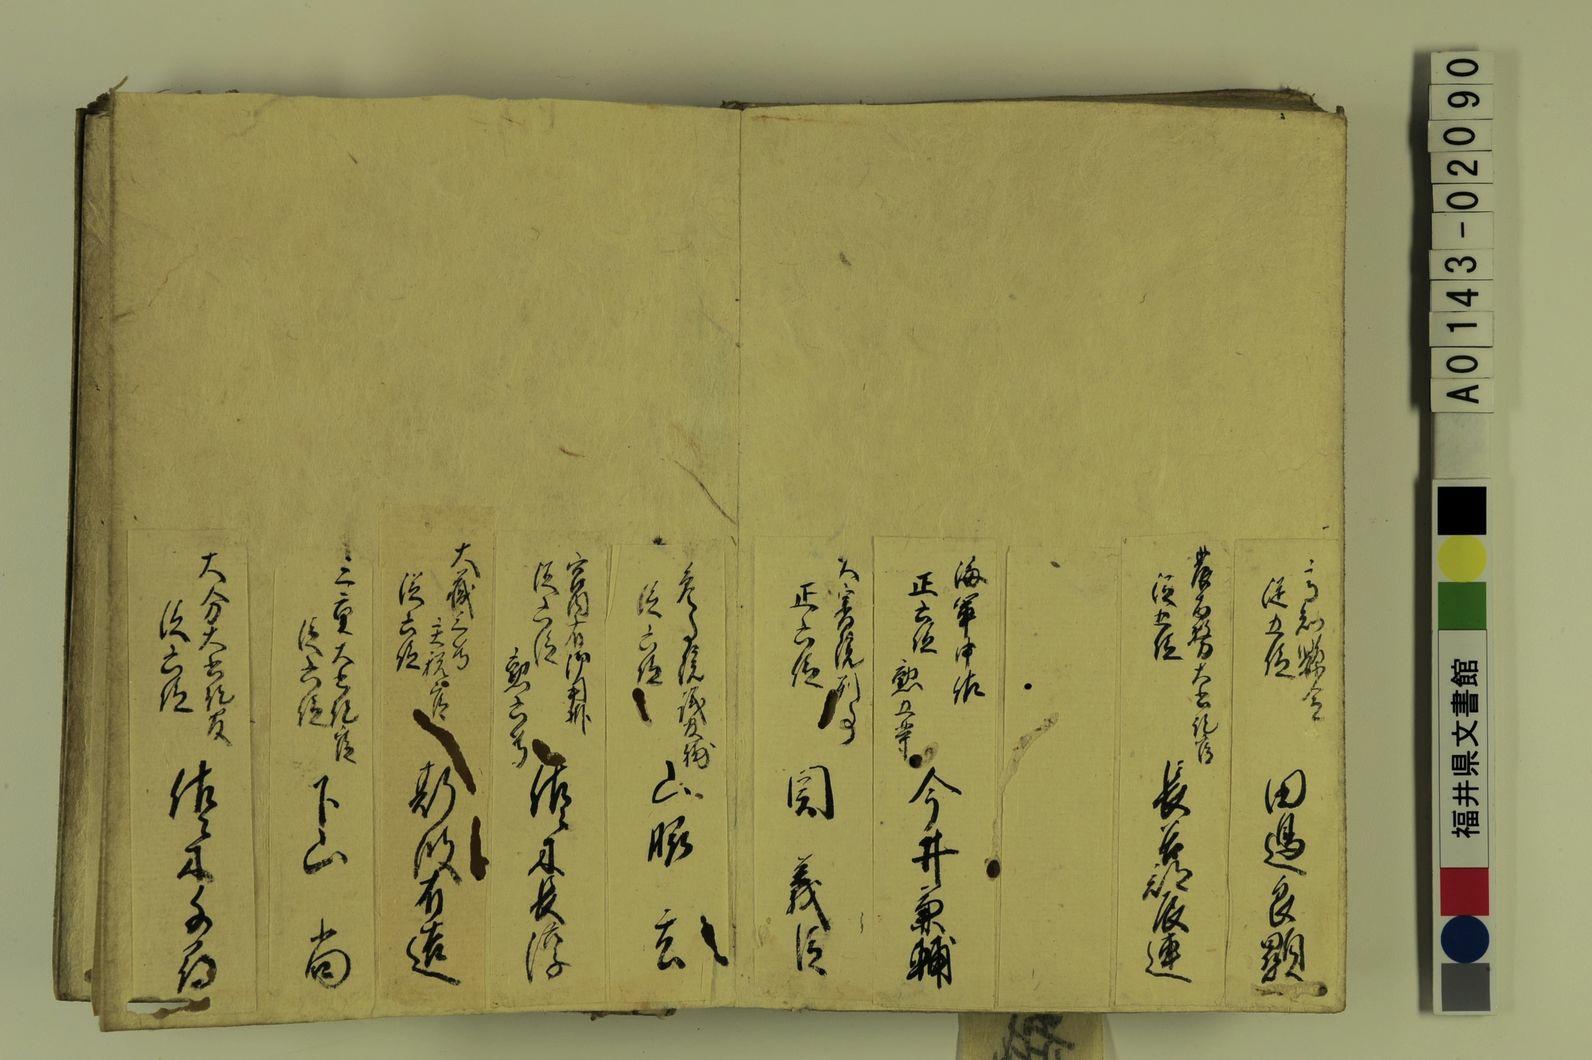 高知縣令
従五位
田邊良顕
農商務大書記官
従五位
長谷部辰連
海軍中佐
正六位
勲五等
今井兼輔
大審院判事
正六位
関義臣
参事院議官補
従六位
山脇玄
宮内省御用掛
従六位
勲六等
佐々木長淳
大蔵
主税官
従六位
斯波有造
三重大書記官
従六位
下山尚
大分大書記官
従六位
佐々木千尋
A0143-02090
福井県文書館